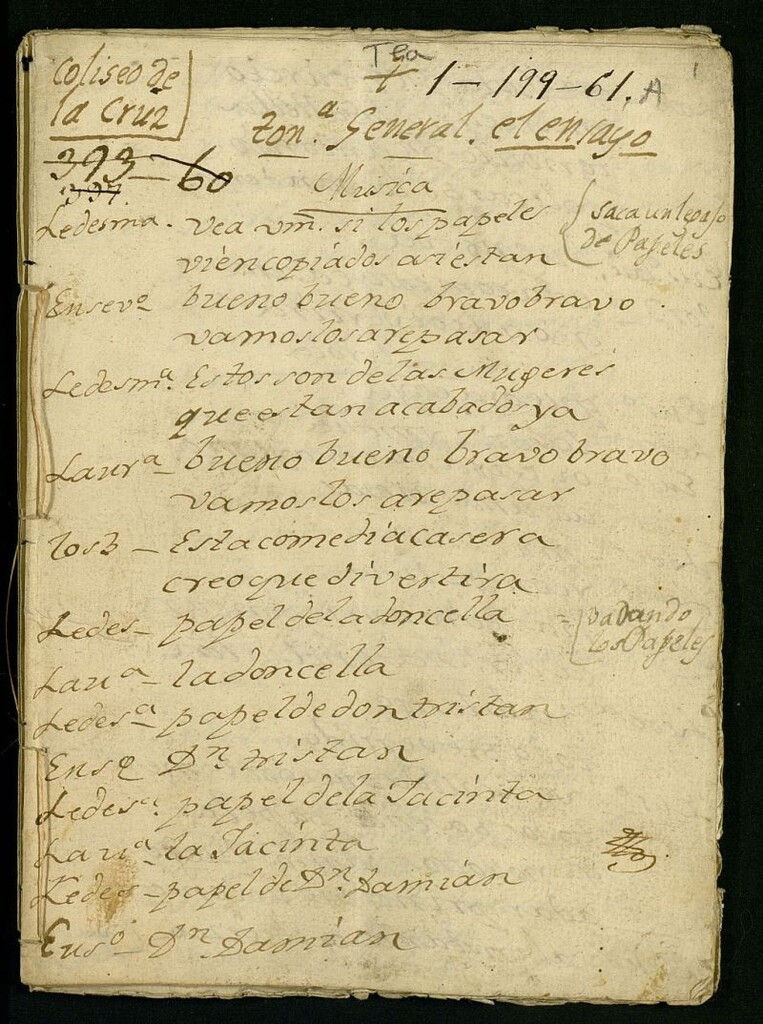 Coliseo de
la Cruz
Tea
1-199-61. A
ton.ª General. el ensayo
393-60
337.
Musica
Ledesma. Vea vm. si los papeles
vien copiados asi estan
saca un legajo
de Papeles
Enseve bueno bueno bravo bravo
vamoslos a repasar
Ledesmª. Estos son de las Mugeres
que estan acabados ya
Laurª - bueno bueno bravo bravo
vamoslos a repasar
los 3 - Esta comedia casera
creo que divertira
Ledes - papel de la doncella
va dando
los Papeles
Lauª - la doncella
Ledesª - papel de don tristan
Ense Dn tristan
Ledesª. papel de la Jacinta
Lauª - la Jacinta
Ledes - papel de Dn. Damián
Eusº - Dn Damián